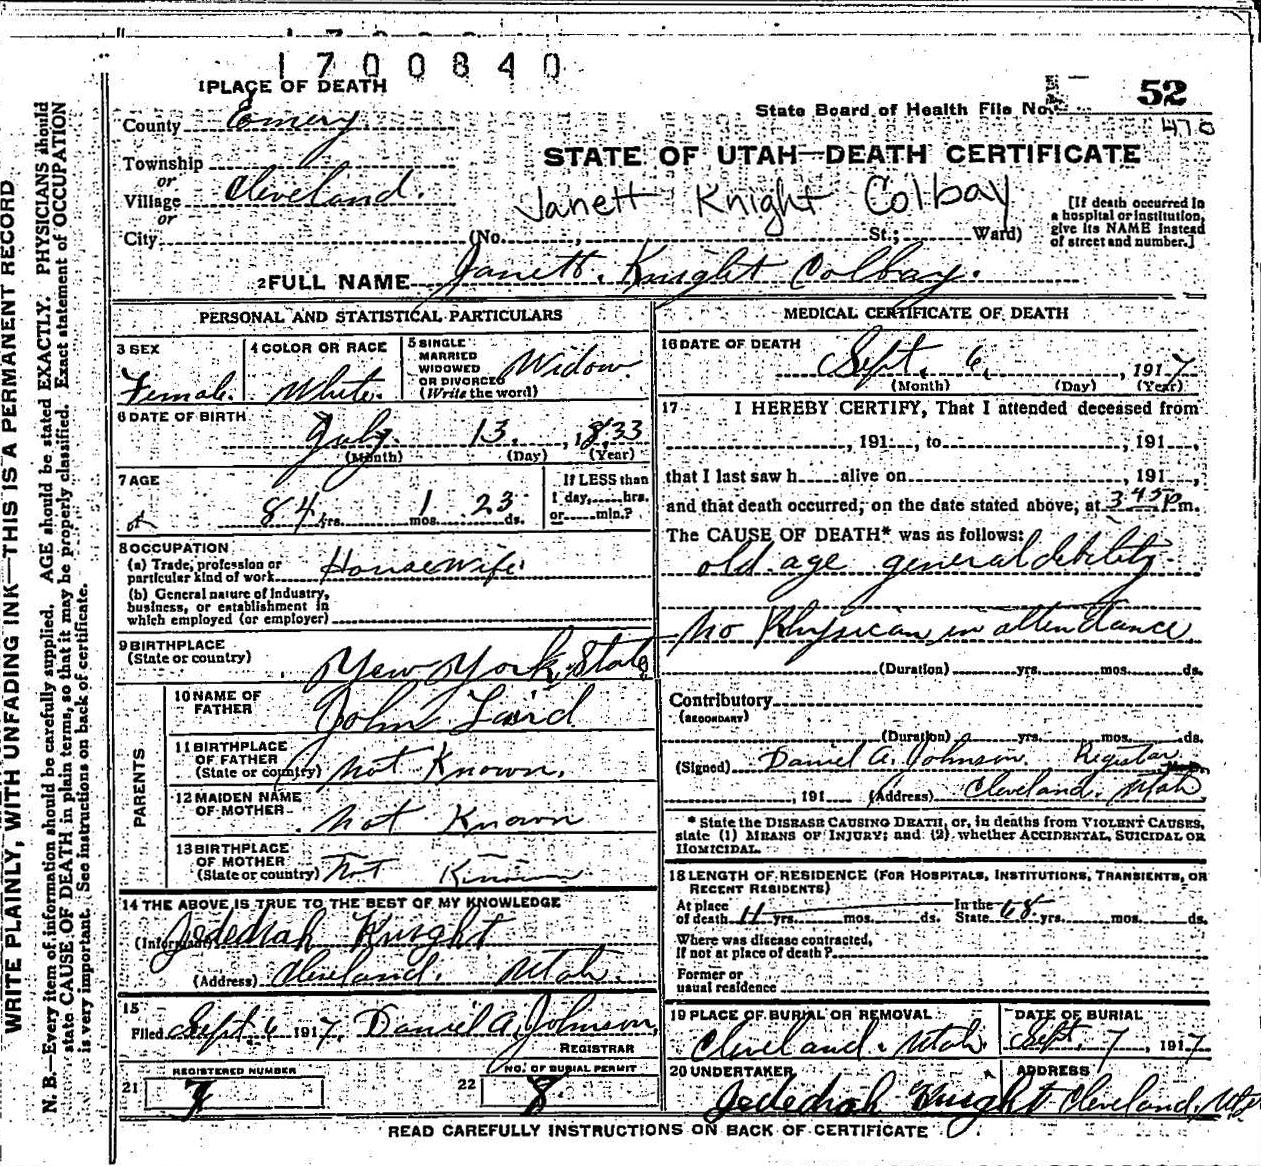 1700840
1 PLACE OF DEATH
State Board of Health File No. 52
470
County Emery
STATE OF UTAH—DEATH CERTIFICATE
Township
or
Village Cleveland.
or
Janett Knight Colbay
[If death occurred in
a hospital or institution,
give its NAME instead
of street and number.]
City (No. , St.; Ward)
2 FULL NAME Janett. Knight Colbay.
PERSONAL AND STATISTICAL PARTICULARS
3 SEX
Female.
4 COLOR OR RACE
White.
5 SINGLE
MARRIED
WIDOWED
OR DIVORCED
(Write the word)
Widow.
6 DATE OF BIRTH
July. 13. , 1833
(Month) (Day) (Year)
7 AGE
84 yrs. 1 mos. 23 ds.
If LESS than
1 day, hrs.
or min.?
8 OCCUPATION
(a) Trade, profession or
particular kind of work Housewife.
(b) General nature of Industry,
business, or establishment in
which employed (or employer)
9 BIRTHPLACE
(State or country) New York State
PARENTS
10 NAME OF
FATHER John Laird
11 BIRTHPLACE
OF FATHER
(State or country) Not Known.
12 MAIDEN NAME
OF MOTHER Not Known
13 BIRTHPLACE
OF MOTHER
(State or country) Not Known
14 THE ABOVE IS TRUE TO THE BEST OF MY KNOWLEDGE
(Informant) Jedediah Knight
(Address) Cleveland. Utah.
15
Filed Sept. 6 1917. Daniel A. Johnson,
REGISTRAR
21 REGISTERED NUMBER
7
22 NO. OF BURIAL PERMIT
8.
MEDICAL CERTIFICATE OF DEATH
16 DATE OF DEATH
Sept. 6, , 1917
(Month) (Day) (Year)
17 I HEREBY CERTIFY, That I attended deceased from
, 191 , to , 191 ,
that I last saw h alive on , 191 ,
and that death occurred, on the date stated above, at 3 45 P. m.
The CAUSE OF DEATH* was as follows:
old age general debility
No Physican in attendance
(Duration) yrs. mos. ds.
Contributory
(SECONDARY)
(Duration) yrs. mos. ds.
(Signed) Daniel A. Johnson. Registar
, 191 (Address) Cleveland. Utah
* State the DISEASE CAUSING DEATH, or, in deaths from VIOLENT CAUSES,
state (1) MEANS OF INJURY; and (2) whether ACCIDENTAL, SUICIDAL OR
HOMICIDAL.
18 LENGTH OF RESIDENCE (FOR HOSPITALS, INSTITUTIONS, TRANSIENTS, OR
RECENT RESIDENTS)
At place
of death 11 yrs. mos. ds. In the State 68 yrs. mos. ds.
Where was disease contracted,
if not at place of death?
Former or
usual residence
19 PLACE OF BURIAL OR REMOVAL
Cleveland. Utah.
DATE OF BURIAL
Sept. 7 , 1917
20 UNDERTAKER
Jedediah Knight
ADDRESS
Cleveland, Utah
READ CAREFULLY INSTRUCTIONS ON BACK OF CERTIFICATE
WRITE PLAINLY, WITH UNFADING INK—THIS IS A PERMANENT RECORD
N. B.—Every item of information should be carefully supplied. AGE should be stated EXACTLY. PHYSICIANS should
state CAUSE OF DEATH in plain terms, so that it may be properly classified. Exact statement of OCCUPATION
is very important. See instructions on back of certificate.